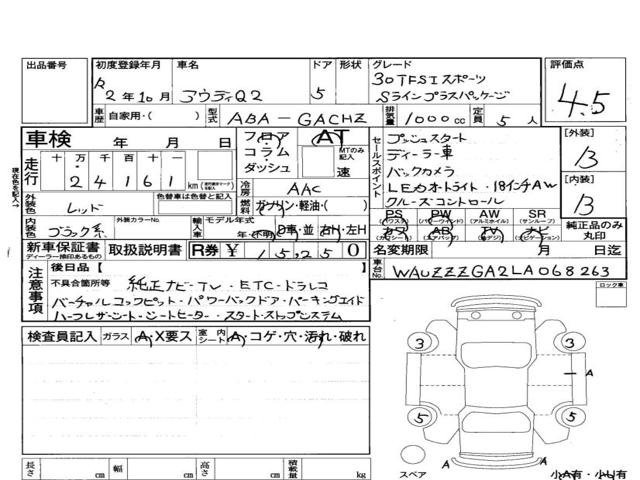 出品番号
初度登録年月 車名 ドア 形状 グレード 評価点
R 2年10月 アウディQ2 5 30TFSIスポーツ
Sラインプラスパッケージ
4.5
車歴 自家用・( ) 型式 ABA-GACHZ 排気量 1000cc 定員 5人
車検 年 月 日
フロア・コラム・ダッシュ
AT
MTのみ記入
速
セールスポイント
プッシュスタート
ディーラー車
バックカメラ
LEDオートライト・18インチAW
クルーズコントロール
[外装]
B
[内装]
B
走行 十万千百十一
24161 km
現在色を記入→
外装色 レッド
色替車は色替前色
冷房 AAC
燃料 ガソリン・軽油・( )
内装色 ブラック系
外装カラーNo.
輸入車 モデル年式
年・不明 D車・並 右H・左H
PS PW AW SR
(パワーウィンド) (アルミホイル) (サンルーフ)
カワ AB TV ナビ
(エアバッグ)
純正品のみ丸印
新車保証書
ディーラー捺印あるもの
取扱説明書
R券 ¥ 15,250
名変期限 月 日迄
車台No. WAUZZZGA2LA068263
注意事項
後日品【
不具合箇所等
純正ナビ-TV・ETC・ドラレコ
バーチャルコックピット・パワーバックドア・パーキングエイド
ハーフレザーシート・シートヒーター・スタートストップシステム
ロック車
検査員記入 ガラス A・X要ス 室内シート A・コゲ・穴・汚れ・破れ
3 3
A
5 5
A A
スペア
小A有・小U有
長さ cm 幅 cm 高さ cm 積載量 kg